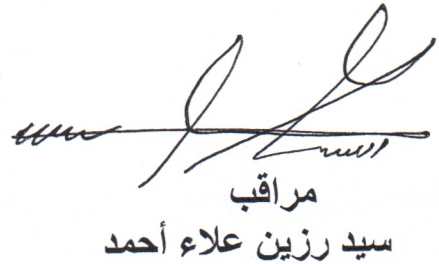 مراقب
سيد رزين علاء أحمد